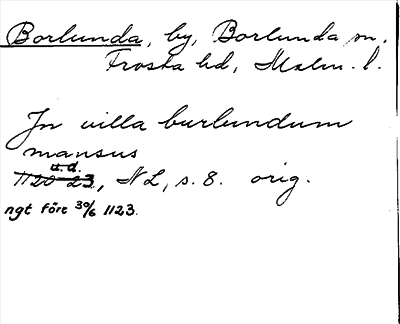 Borlunda, by, Borlunda sn.
Frosta hd, Malm. l.
In villa burlundum
mansus
u.d.
1120-23, NL, s. 8. orig.
ngt före 30/6 1123.